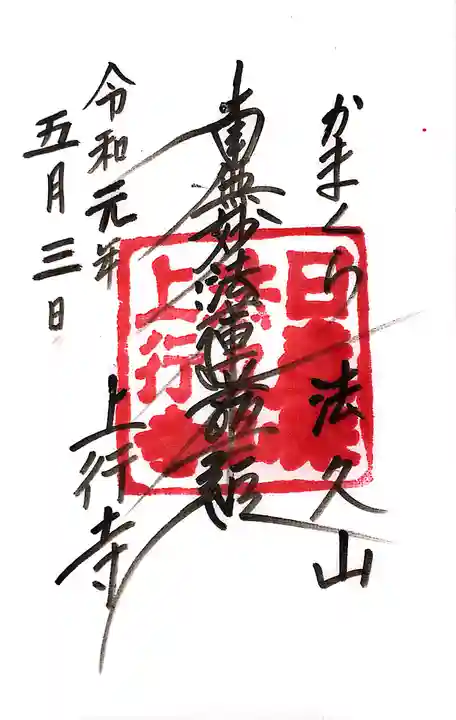 かまくら 法久山
南無妙法蓮華経
令和元年
五月三日
上行寺
上行寺